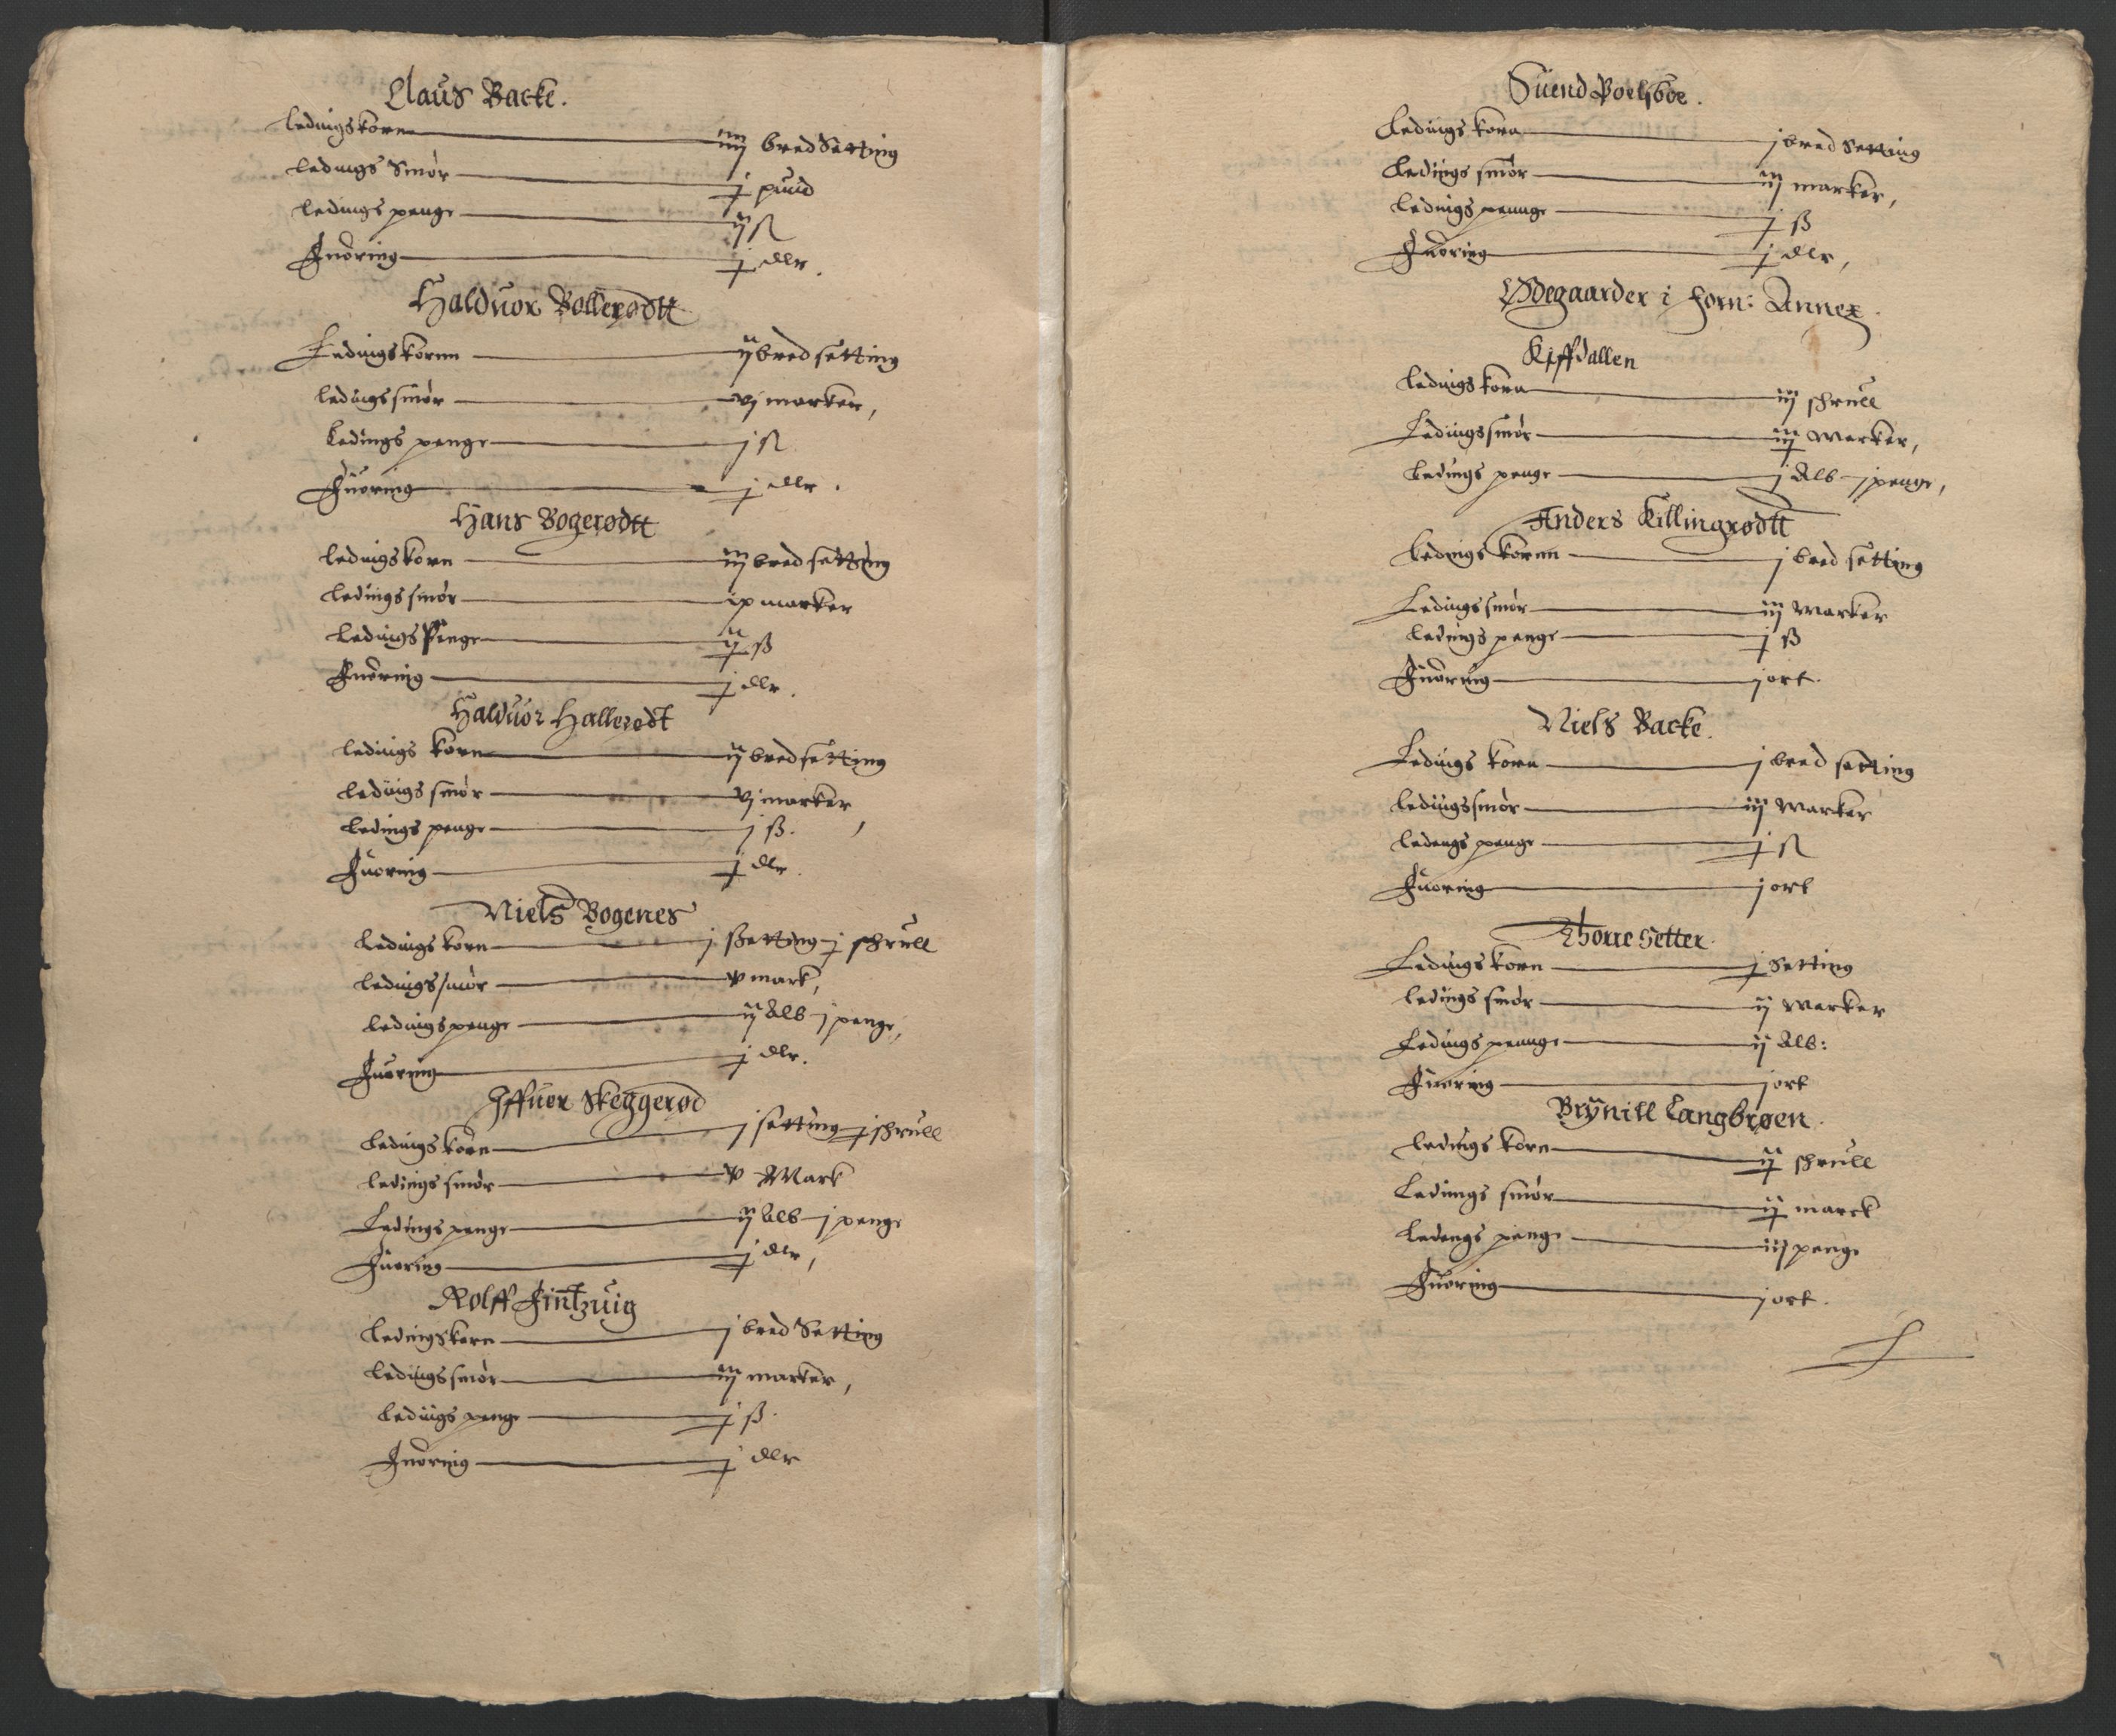 Claus Backe.
ledingskorn iiij bredSetting
ledings Smør j pund
ledings penge ij ß
Fuoring j dlr.
Halduor Bollerødtt
Ledingskornn ij bredsetting
ledingssmør vj marker,
Ledings penge j ß
Fuoring j dlr.
Hans Bogerødtt
ledingskorn iij bredsetting
ledingssmør ix marker
ledings Penge ij ß
Fuoring j dlr.
Halduor Hallerødt
ledings korn ij bredsetting
ledings smør vj marker,
ledings penge j ß.
Fuoring j dlr.
Niels Bogenes
ledingskorn j ßetting j skrull
ledingssmør v mark,
ledingspenge ij Alb j penge,
Fuoring j dlr.
Iffuer Skeggerød
ledingskorn j setting j skrull
ledings smør v Mark
Ledings penge ij Alb j penge
Fuoring j dlr,
Rolff Fintzuig
ledingskorn j bred Setting
ledingssmør iij marker,
ledings penge j ß.
Fuoring j dlr
Suend Poelsboe.
ledings korn j bred Setting
ledings smør iij marker,
ledings pennge j ß
Fuoring j dlr,
Ødegaarder i forn: Annex.
Kiffdallen
ledings korn iij skrull
Ledingssmør iij Marker,
ledings penge j Alb j penge,
Anders Killingrødtt
ledings kornn j bred setting
Ledingssmør iij Marker
ledings penge j ß
Fuoring j ort.
Niels Backe.
Ledings korn j bred setting
ledingssmør iij Marker
ledengs penge j ß
Fuoring j ort
Thorre Setter.
Ledings korn j Setting
ledings smør ij Marker
Ledings pennge ij Alb:
Fuoring j ort
Brÿnill Langbrøen.
ledings korn ij skrull
Ledings smør ij marck
ledengs penge iij penge
Fuoring j ort.